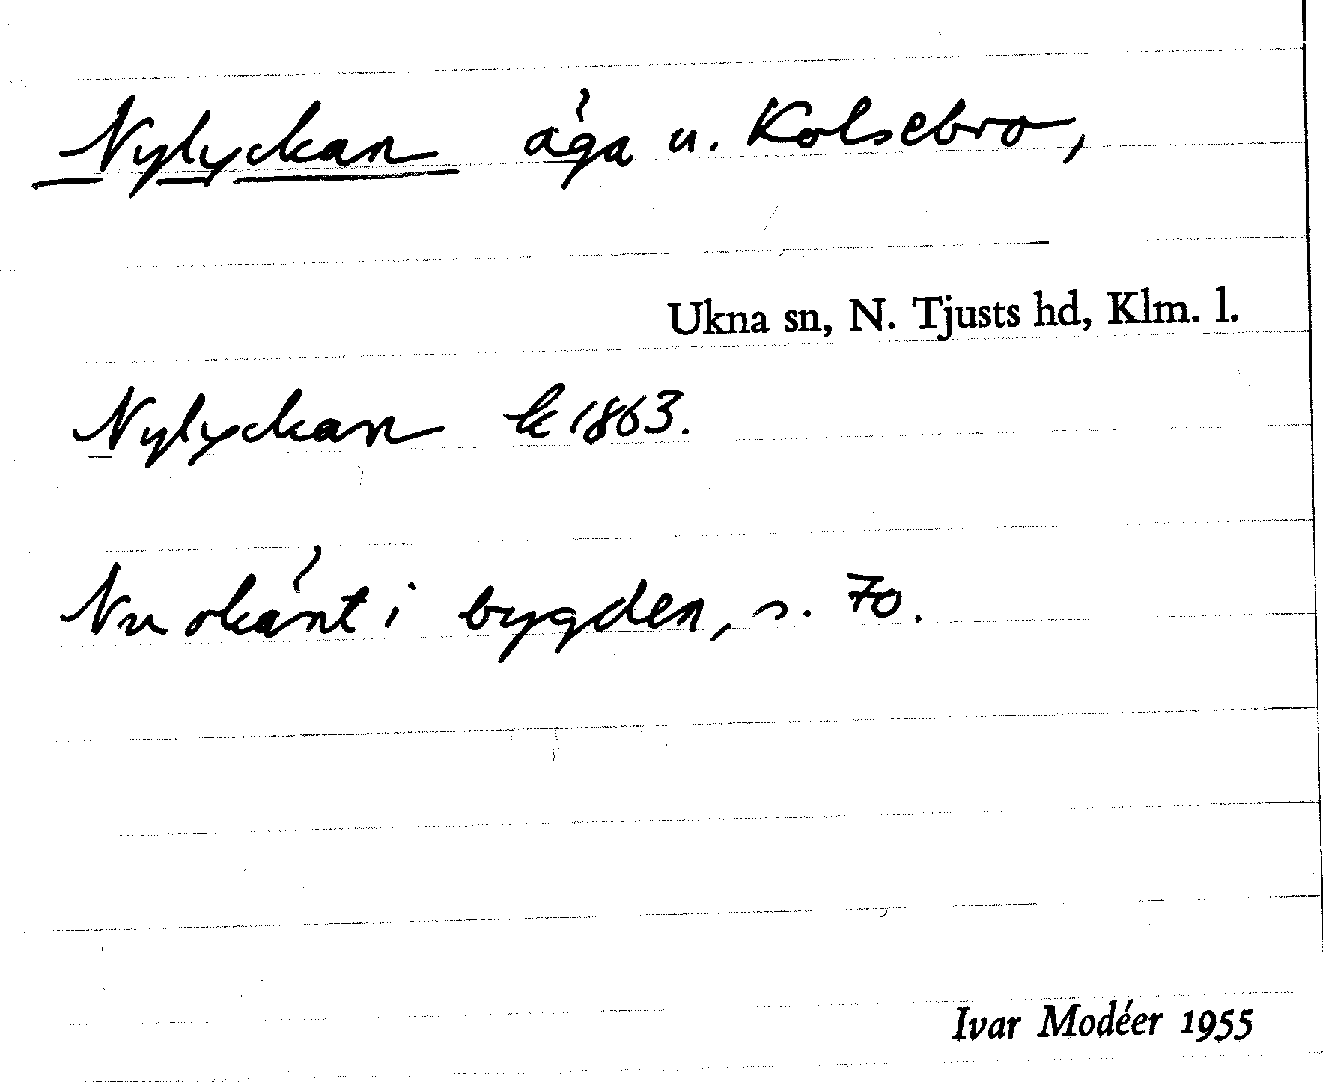 Nylyckan åga u. Kolsebro,
Ukna sn, N. Tjusts hd, Klm. l.
Nylyckan lk 1863.
Nu okänt i bygden, s. 70.
Ivar Modéer 1955